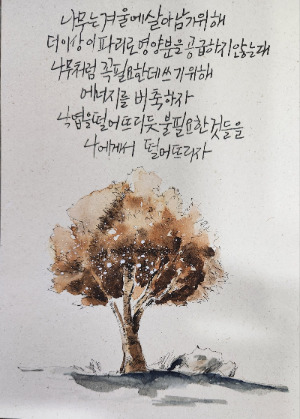 나무는 겨울에 살아남기 위해
더이상 이파리로 영양분을 공급하지 않는대
나무처럼 꼭 필요한데 쓰기 위해
에너지를 비축하자
낙엽을 떨어뜨리듯 불필요한 것들을
나에게서 떨어뜨리자